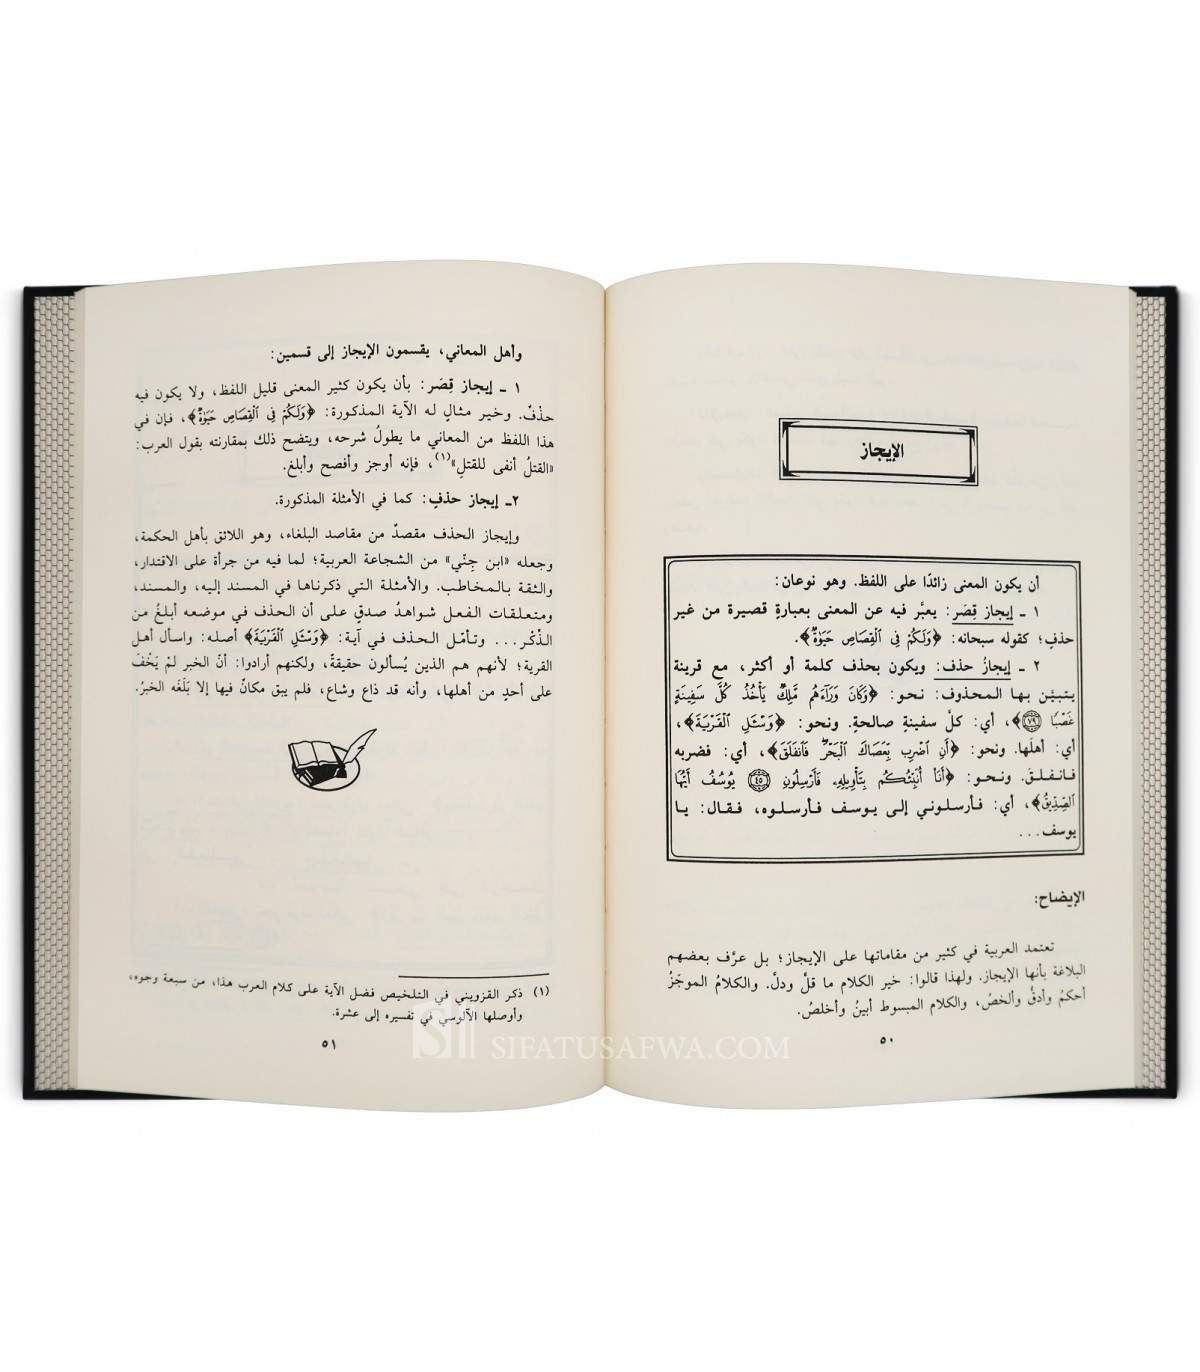 الإيجاز
أن يكون المعنى زائدًا على اللفظ. وهو نوعان:
١ ـ إيجاز قِصَر: يعبَّر فيه عن المعنى بعبارةٍ قصيرة من غير
حذفٍ؛ كقوله سبحانه: ﴿وَلَكُمْ فِى ٱلْقِصَاصِ حَيَوٰةٌ﴾.
٢ ـ إيجازُ حذف: ويكون بحذف كلمة أو أكثر، مع قرينة
يتبيّن بها المحذوف: نحو: ﴿وَكَانَ وَرَآءَهُم مَّلِكٌ يَأْخُذُ كُلَّ سَفِينَةٍ
غَصْبًا ٧٩﴾، أي: كلَّ سفينةٍ صالحةٍ. ونحو: ﴿وَسْـَٔلِ ٱلْقَرْيَةَ﴾،
أي: أهلَها. ونحو: ﴿أَنِ ٱضْرِب بِّعَصَاكَ ٱلْبَحْرَ فَٱنفَلَقَ﴾، أي: فضربه
فانفلق. ونحو: ﴿أَنَا۠ أُنَبِّئُكُم بِتَأْوِيلِهِۦ فَأَرْسِلُونِ ٤٥ يُوسُفُ أَيُّهَا
ٱلصِّدِّيقُ﴾، أي: فأرسلوني إلى يوسف فأرسلوه، فقال: يا
يوسف...
الإيضاح:
تعتمد العربية في كثير من مقاماتها على الإيجاز؛ بل عرَّف بعضهم
البلاغة بأنها الإيجاز. ولهذا قالوا: خير الكلام ما قلَّ ودلَّ. والكلامُ الموجَزُ
أحكمُ وأدقُّ وألخصُ، والكلام المبسوط أبينُ وأخلصُ.
٥٠
وأهل المعاني، يقسمون الإيجاز إلى قسمين:
١ ـ إيجاز قِصَر: بأن يكون كثير المعنى قليل اللفظ، ولا يكون فيه
حذفٌ. وخير مثالٍ له الآية المذكورة: ﴿وَلَكُمْ فِى ٱلْقِصَاصِ حَيَوٰةٌ﴾، فإن في
هذا اللفظ من المعاني ما يطولُ شرحه، ويتضح ذلك بمقارنته بقول العرب:
«القتلُ أنفى للقتلِ»(١)، فإنه أوجز وأفصح وأبلغ.
٢ـ إيجاز حذفٍ: كما في الأمثلة المذكورة.
وإيجاز الحذف مقصدٌ من مقاصد البلغاء، وهو اللائق بأهل الحكمة،
وجعله «ابن جِنّي» من الشجاعة العربية؛ لما فيه من جرأة على الاقتدار،
والثقة بالمخاطب. والأمثلة التي ذكرناها في المسند إليه، والمسند،
ومتعلقات الفعل شواهدُ صدقٍ على أن الحذف في موضعه أبلغُ من
الذّكْر... وتأمَّل الحذف في آية: ﴿وَسْـَٔلِ ٱلْقَرْيَةَ﴾ أصله: واسأل أهل
القرية؛ لأنهم هم الذين يُسألون حقيقةً، ولكنهم أرادوا: أنّ الخبر لمْ يَخْفَ
على أحدٍ من أهلها، وأنه قد ذاع وشاع، فلم يبق مكانٌ فيها إلا بَلَغَه الخبرُ.
(١) ذكر القزويني في التلخيص فضل الآية على كلام العرب هذا، من سبعة وجوه،
وأوصلها الآلوسي في تفسيره إلى عشرة.
٥١
SIFATUSAFWA.COM